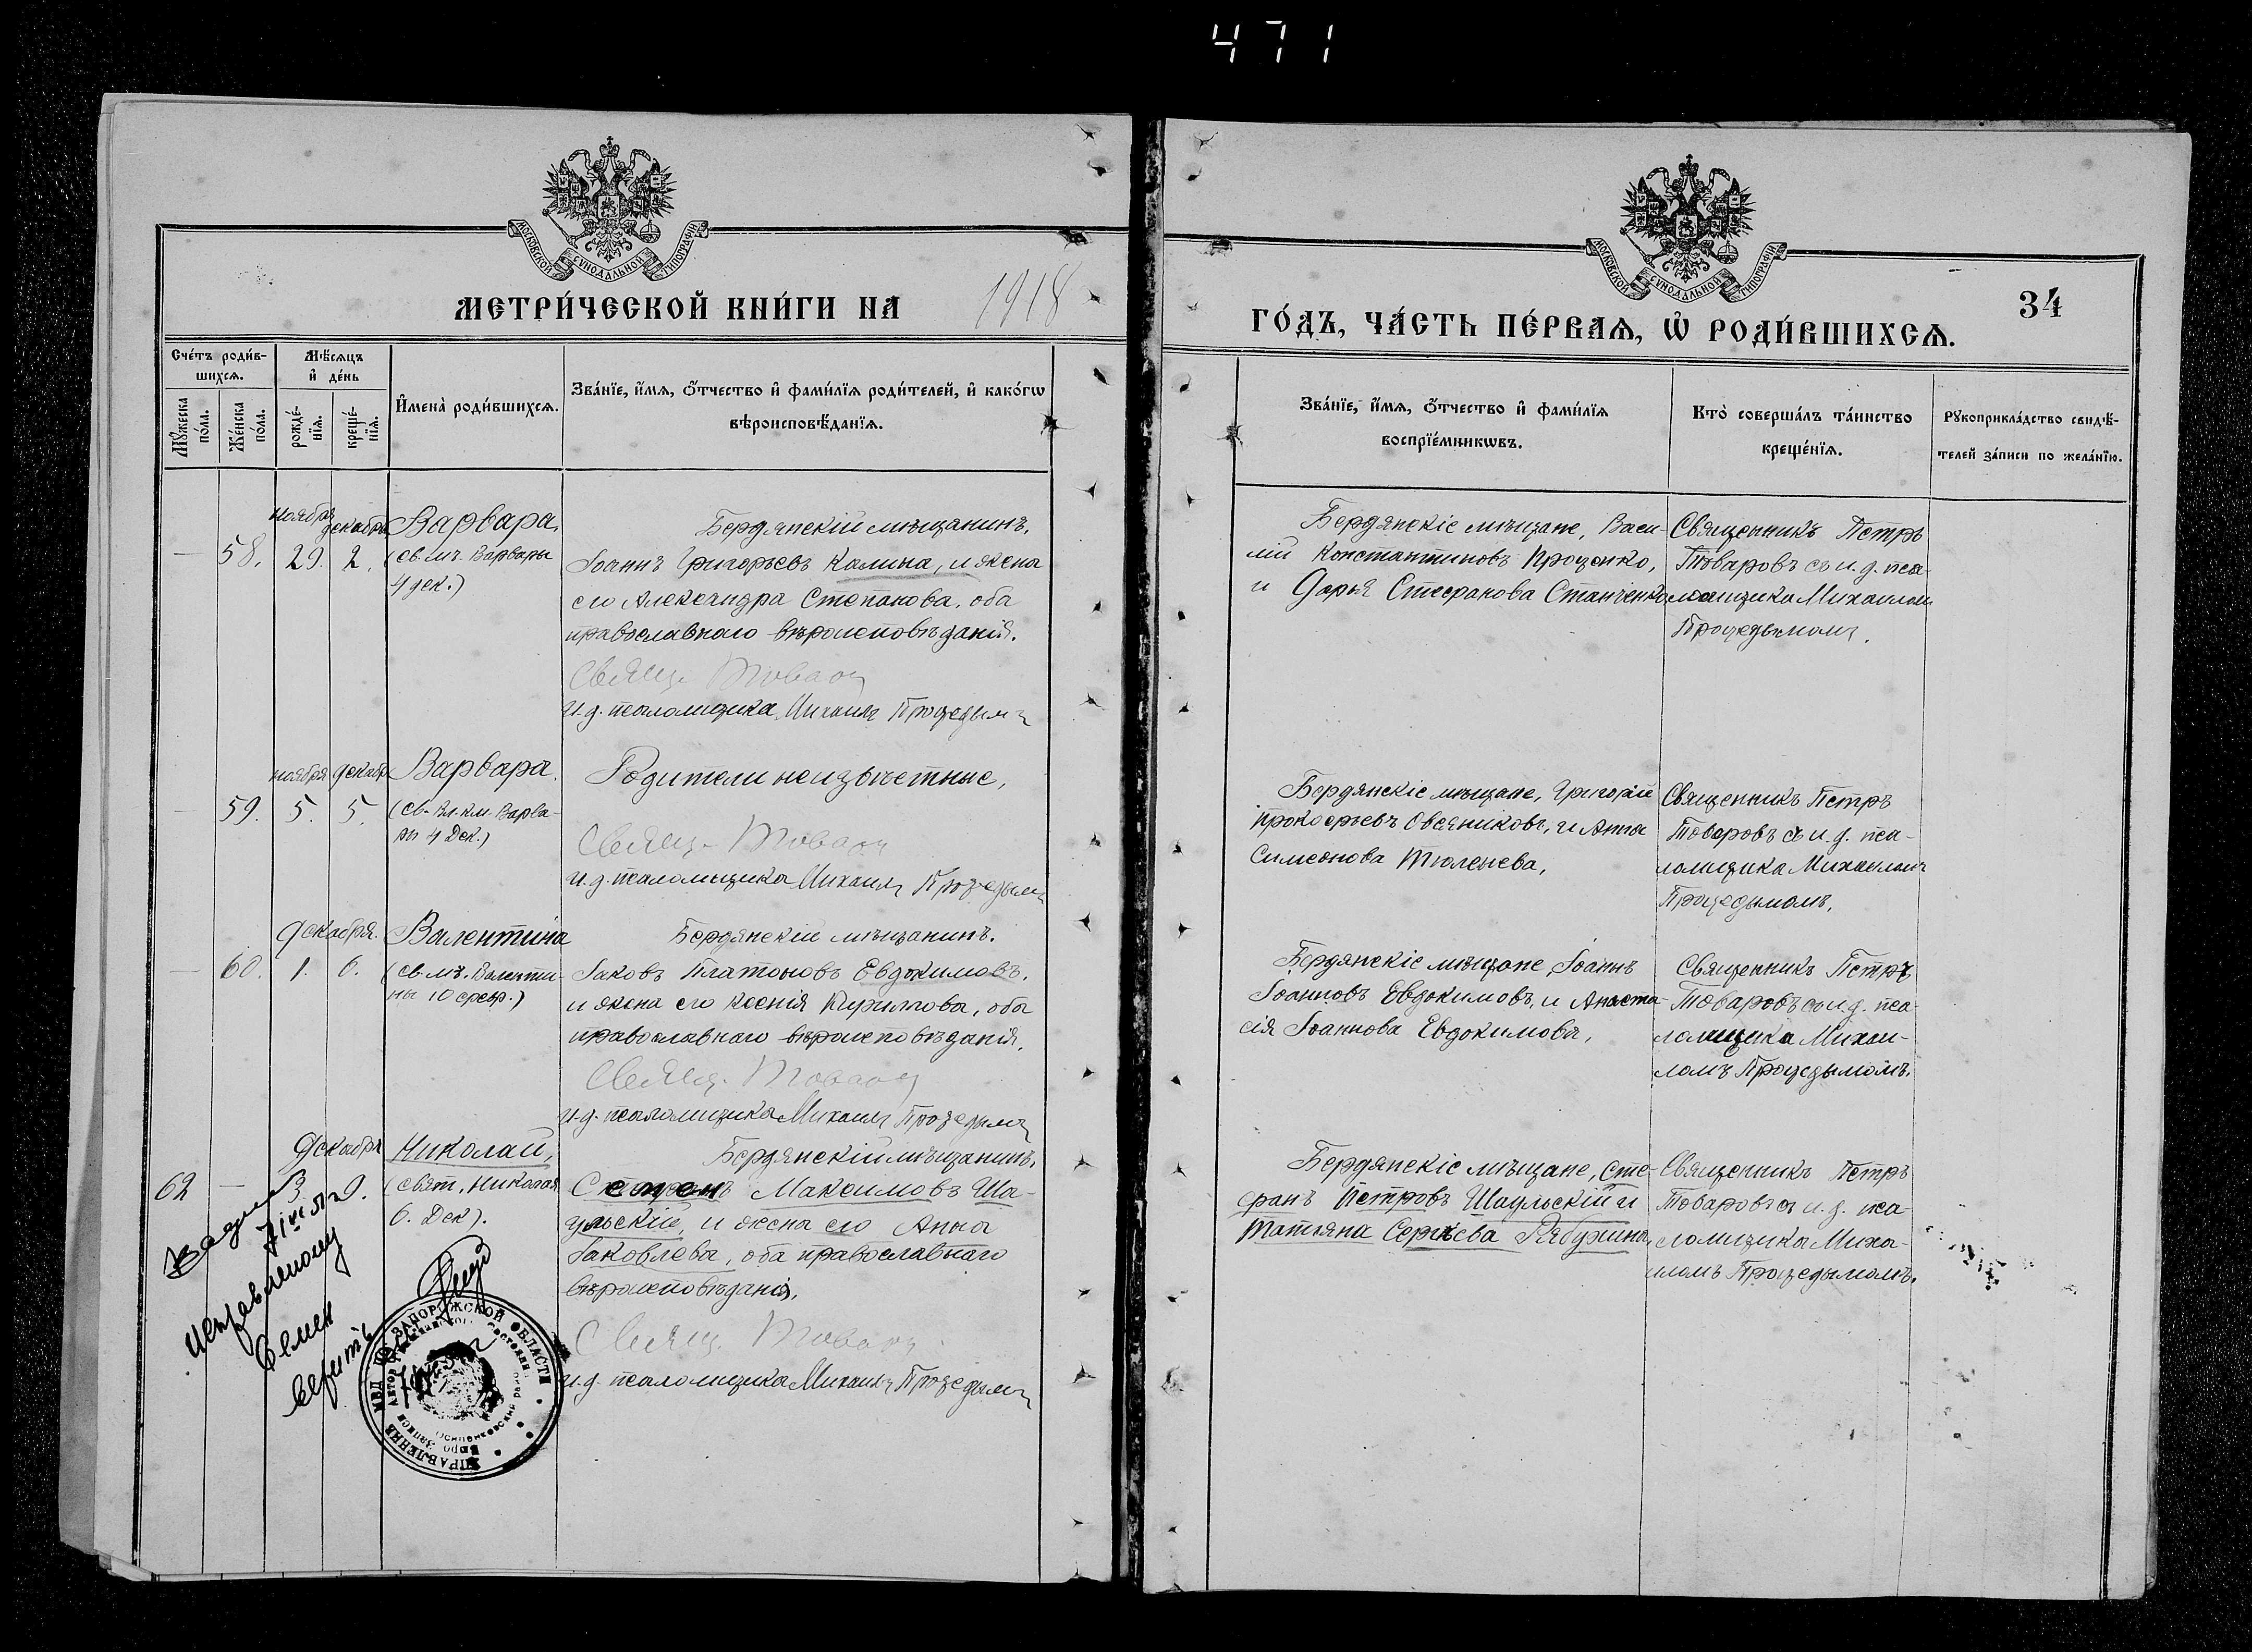 471
МОСКОВСКОЙ СУНОДАЛЬНОЙ ТИПОГРАФІИ
МЕТРИ́ЧЕСКОЙ КНИ́ГИ НА 1918
Сче́тъ роди́в-
шихсѧ.
Мꙋ́жеска
по́ла.
Же́нска
по́ла.
Мѣ́сѧцъ
и҆ де́нь
рожде́-
нїѧ.
креще́-
нїѧ.
И҆мена̀ роди́вшихсѧ.
Зва́нїе, и҆́мѧ, ѻ҆́тчество и҆ фами́лїѧ роди́телей, и҆ како́гѡ
вѣроисповѣ́данїѧ.
58.
ноября
29.
декабря
2.
Варвара,
(св. мч. Варвары
4 дек.)
Бердянскій мѣщанинъ,
Іоаннъ Григорьевъ Калина, и жена
его Александра Степанова, оба
православнаго вѣроисповѣданія.
Свящ. Товаров
И. д. псаломщика Михаилъ Процедымъ
59.
ноября
5.
декабр
5.
Варвара.
(св. Вл. км. Варва-
ры 4 Дек.)
Родители неизвѣстные,
Свящ. Товаров
И. д. псаломщика Михаилъ Процедымъ
декабря.
60.
1.
6.
Валентина
(св. мч. Валенти-
ны 10 февр.)
Бердянскій мѣщанинъ.
Іаковъ Платоновъ Евдокимовъ,
и жена его Ксенія Кириллова, оба
православнаго вѣроисповѣданія,
Свящ. Товаров
И. д. псаломщика Михаилъ Процедымъ
Декабря
62
3.
9.
Николай,
(Свят. Николая
6. Дек).
Бердянскій мѣщанинъ,
Семенъ Максимовъ Ша-
ульскій, и жена его Анна
Іаковлева, оба православнаго
вѣроисповѣданія,
Свящ. Товаров
И. д. псаломщика Михаилъ Процедымъ
Исправленому
Семен
верить
УПРАВЛЕНИЕ МВД ПО ЗАПОРОЖСКОЙ ОБЛАСТИ
ГО́ДЪ, ЧА́СТЬ ПЕ́РВАѦ, Ѡ҆ РОДИ́ВШИХСѦ.
34
МОСКОВСКОЙ СУНОДАЛЬНОЙ ТИПОГРАФІИ
Зва́нїе, и҆́мѧ, ѻ҆́тчество и҆ фами́лїѧ
воспрїе́мникѡвъ.
Кто̀ соверша́лъ та́инство
креще́нїѧ.
Рꙋкоприкла́дство свидѣ́-
телей за́писи по жела́нїю.
Бердянскіе мѣщане, Васи-
лій Константиновъ Проценко,
и Дарья Стефанова Станченко
Священникъ Петръ
Товаровъ съ и. д. пса-
ломщика Михаиломъ
Процедымомъ.
Бердянскіе мѣщане, Григорій
Прокофьевъ Овсяниковъ, и Анна
Симеонова Тюленева,
Священникъ Петръ
Товаровъ съ и. д. пса-
ломщика Михаиломъ
Процедымомъ,
Бердянскіе мѣщане, Іоаннъ
Іоанновъ Евдокимовъ, и Анаста-
сія Іоаннова Евдокимова,
Священникъ Петръ
Товаровъ съ и. д. пса-
ломщика Михаи-
ломъ Процедымомъ.
Бердянскіе мѣщане, Сте-
фанъ Петровъ Шаульскій и
Татіана Сергѣева Рябухина,
Священникъ Петръ
Товаровъ съ и. д. пса-
ломщика Миха-
иломъ Процедымомъ.